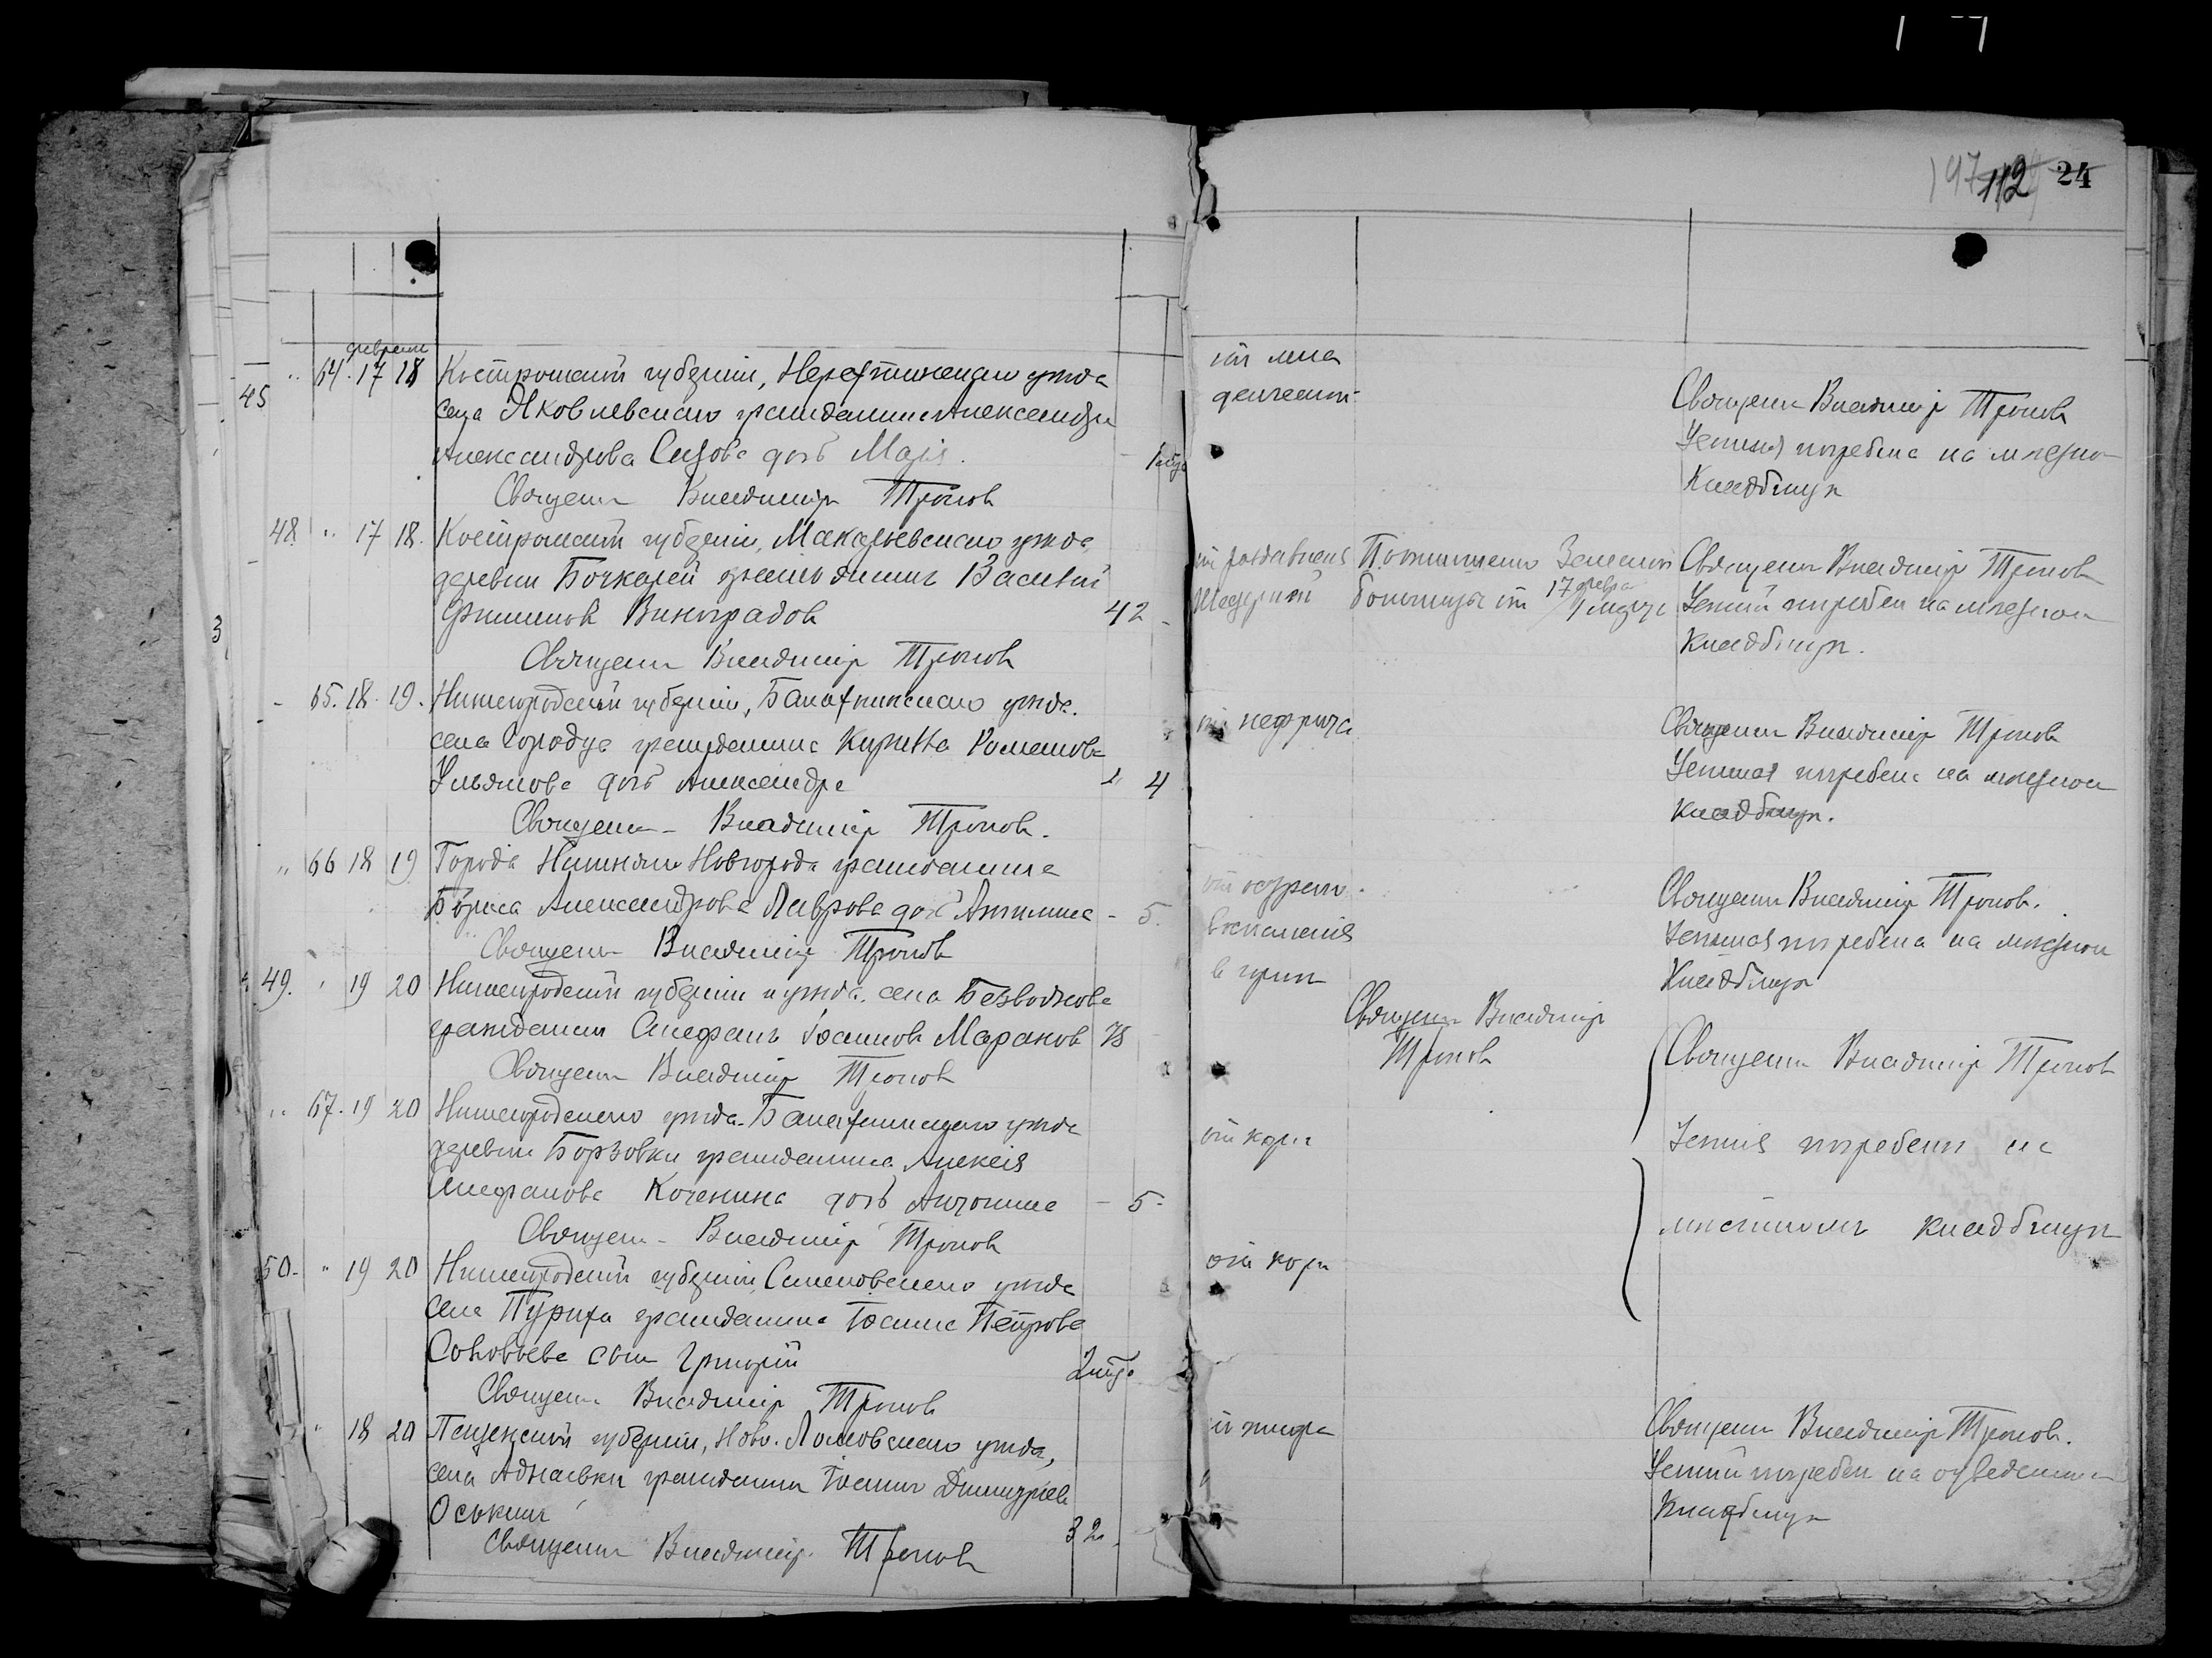 112 24
февраля
64 17 18 Костромской губернии, Нерехтинскаго уезда
45
села Яковлевскаго гражданина Александра
Александрова Сизова дочь
Священник Владимир Тронов
от мла
денческой
Священник Владимир Тронов
погребена на местном
Кладбище
48 " 17 18. Костромской губернии, Макарьевскаго уезда
деревни Бочкарей гражданин Василий
Филиппов Виноградов 42
Священник Владимир Тронов
больницы от 17 февра
Священник Владимир Тронов
погребен на местном
кладбище.
65. 18 19. Нижегородской губернии, Балахнинскаго уезда.
села Городца гражданина Кирилла Романова
Ульянова дочь Александра 4
Священник Владимир Тронов.
от нефрита
Священник Владимир Тронов
погребена на местном
кладбище.
" 66 18 19 Города Нижняго Новгорода гражданина
Бориса Александрова Лаврова дочь - 5.
Священник Владимир Тронов
воспаления
Священник Владимир Тронов.
погребена на местном
Кладбище
49. " 19 20 Нижегородской губернии и уезда, села Безводнова
гражданин Стефан Иоаннов Мараков 78
Священник Владимир Тронов
Священник Владимир
Тронов
Священник Владимир Тронов
" 67. 19 20 Нижегородскаго уезда Балахнинскаго уезда
деревни Борзовки гражданина Алексія
Стефанова Коченина дочь Антонина - 5.
Священ Владимир Тронов
от кори
погребены на
местном кладбище
50. " 19 20 Нижегородской губернии, Семеновскаго уезда
села Пуриха гражданина Іоанна Петрова
Соловьева сын Григорій
Священ Владимир Тронов
от кори
" 18 20 Пензенской губернии, Ново-Ломовскаго уезда,
села гражданин Іоанн Димитріев
Оськин 32.
Священник Владимир Тронов
от тифа
Священник Владимир Тронов.
погребен на
Кладбище